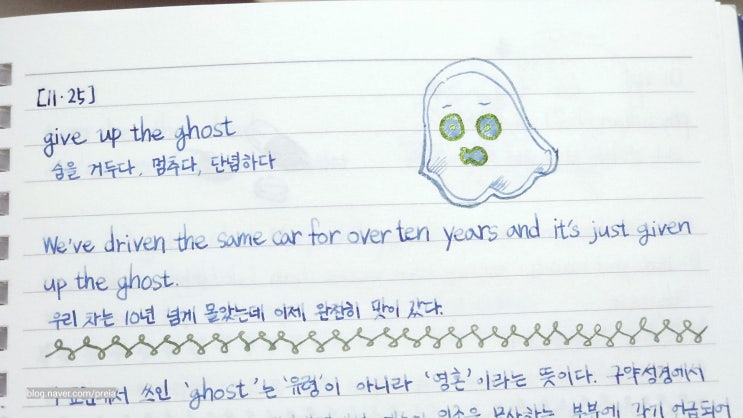 [11·25]
give up the ghost
숨을 거두다, 멈추다, 단념하다
We've driven the same car for over ten years and it's just given
up the ghost.
우리 차는 10년 넘게 몰았는데 이제 완전히 맛이 갔다.
쓰인 'ghost'는 '유령'이 아니라 '영혼'이라는 뜻이다. 구약성경에서
blog.naver.com/preia